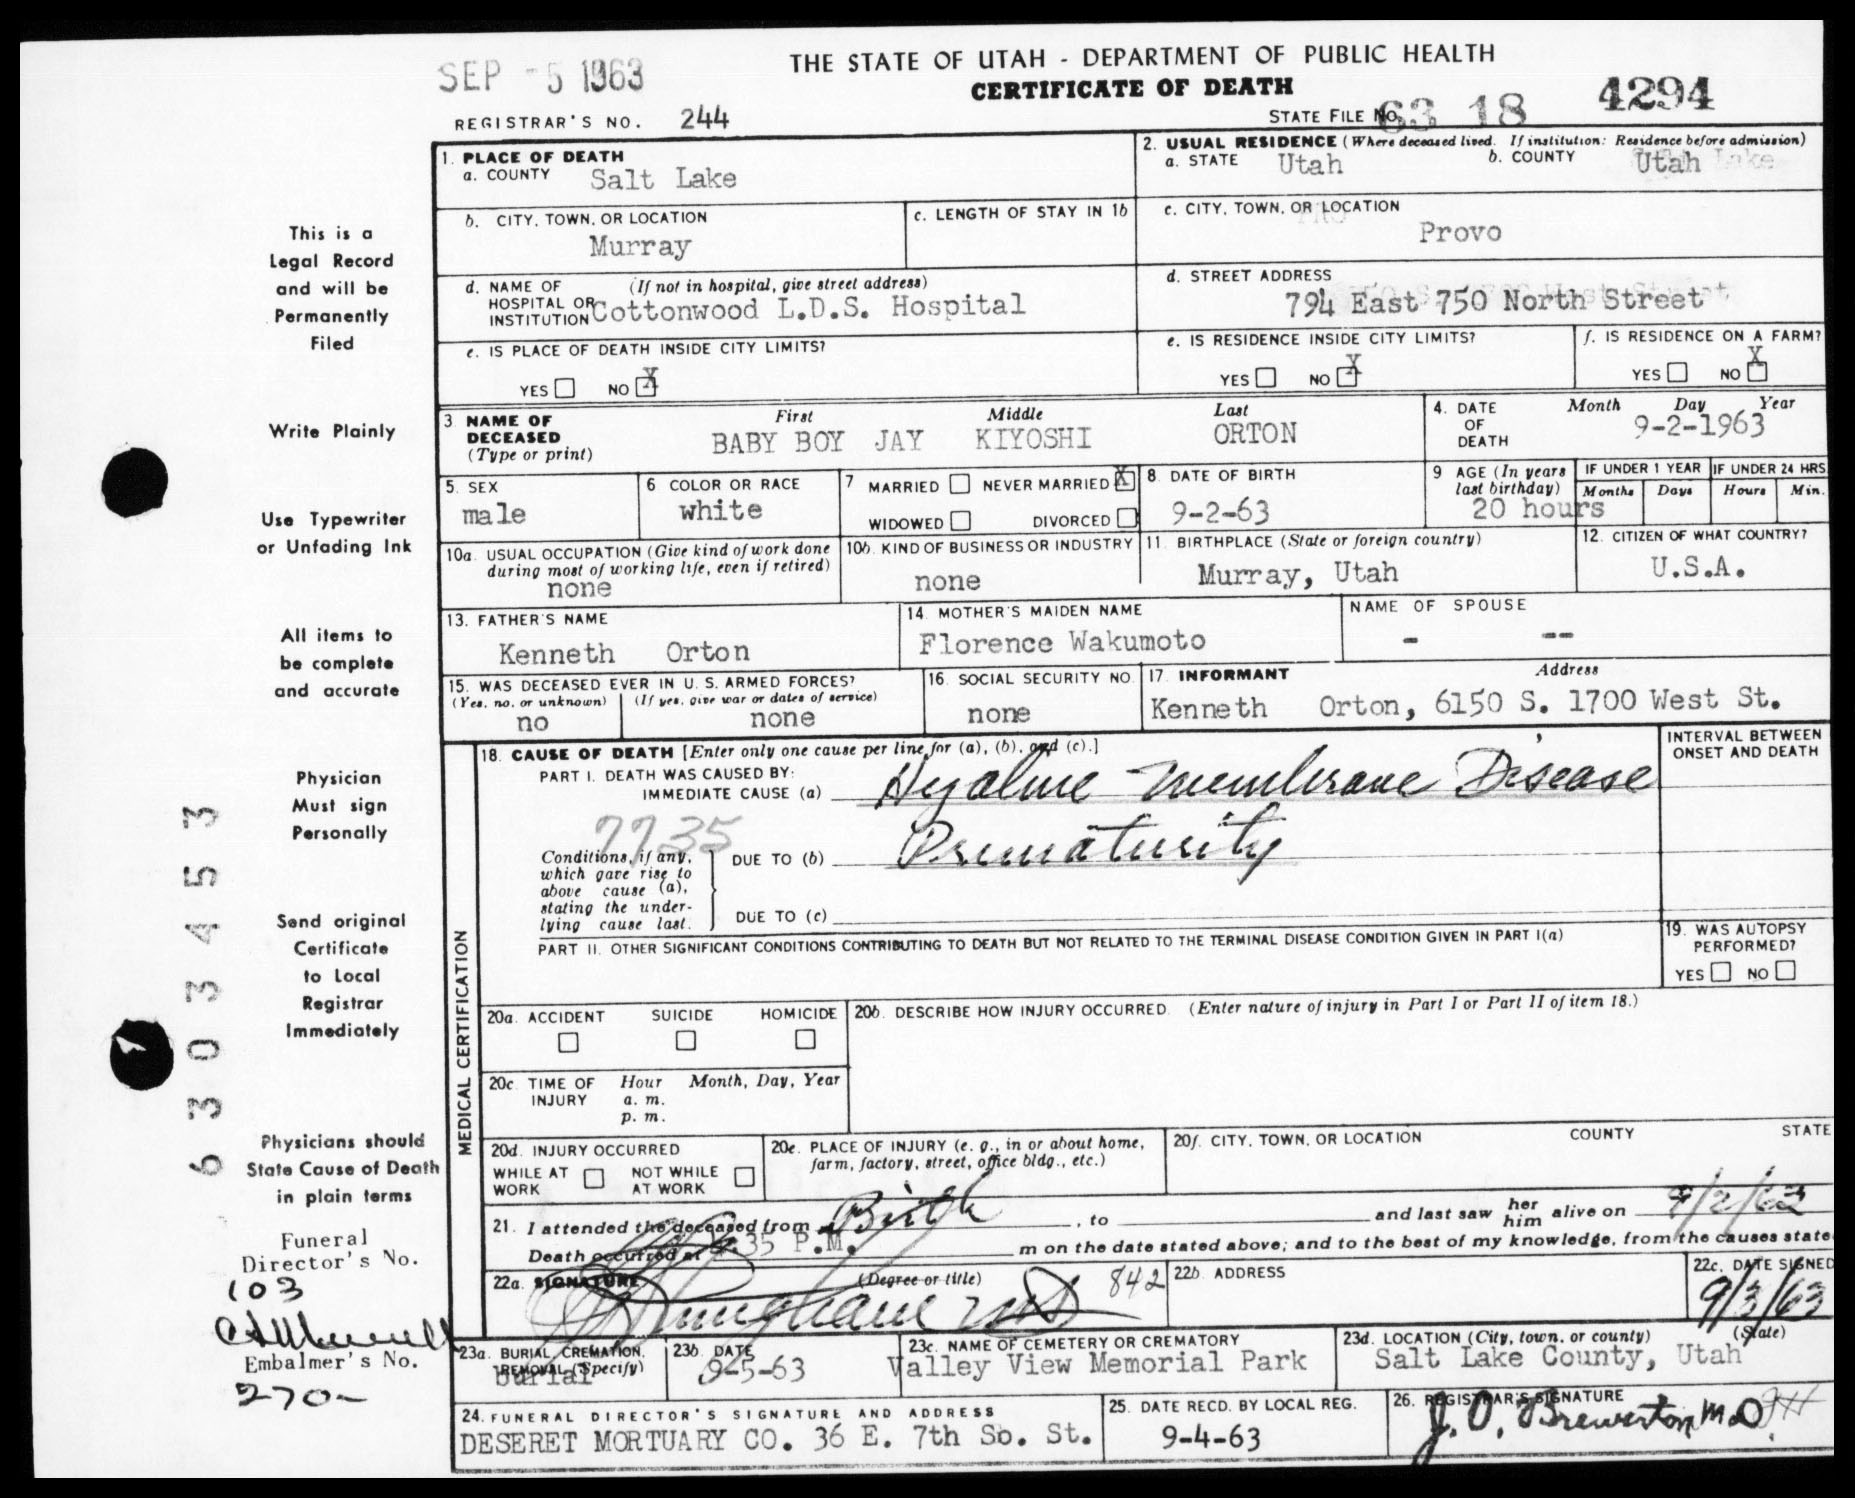 SEP -5 1963
THE STATE OF UTAH - DEPARTMENT OF PUBLIC HEALTH
CERTIFICATE OF DEATH
REGISTRAR'S NO. 244
STATE FILE No. 63 18 4294
This is a
Legal Record
and will be
Permanently
Filed
Write Plainly
Use Typewriter
or Unfading Ink
All items to
be complete
and accurate
Physician
Must sign
Personally
Send original
Certificate
to Local
Registrar
Immediately
Physicians should
State Cause of Death
in plain terms
Funeral
Director's No.
103
Embalmer's No.
270-
6303453
1. PLACE OF DEATH
a. COUNTY Salt Lake
2. USUAL RESIDENCE (Where deceased lived. If institution: Residence before admission)
a. STATE Utah b. COUNTY Utah
b. CITY, TOWN, OR LOCATION
Murray
c. LENGTH OF STAY IN 1b
c. CITY, TOWN, OR LOCATION
Provo
d. NAME OF (If not in hospital, give street address)
HOSPITAL OR
INSTITUTION Cottonwood L.D.S. Hospital
d. STREET ADDRESS
794 East 750 North Street
e. IS PLACE OF DEATH INSIDE CITY LIMITS?
YES NO X
e. IS RESIDENCE INSIDE CITY LIMITS?
YES NO X
f. IS RESIDENCE ON A FARM?
YES NO X
3 NAME OF DECEASED (Type or print)
First Middle Last
BABY BOY JAY KIYOSHI ORTON
4. DATE OF DEATH
Month Day Year
9-2-1963
5. SEX
male
6 COLOR OR RACE
white
7 MARRIED NEVER MARRIED X
WIDOWED DIVORCED
8. DATE OF BIRTH
9-2-63
9 AGE (In years last birthday)
IF UNDER 1 YEAR IF UNDER 24 HRS.
Months Days Hours Min.
20 hours
10a. USUAL OCCUPATION (Give kind of work done
during most of working life, even if retired)
none
10b. KIND OF BUSINESS OR INDUSTRY
none
11. BIRTHPLACE (State or foreign country)
Murray, Utah
12. CITIZEN OF WHAT COUNTRY?
U.S.A.
13. FATHER'S NAME
Kenneth Orton
14. MOTHER'S MAIDEN NAME
Florence Wakumoto
NAME OF SPOUSE
- --
15. WAS DECEASED EVER IN U. S. ARMED FORCES?
(Yes, no, or unknown) (If yes, give war or dates of service)
no none
16. SOCIAL SECURITY NO.
none
17. INFORMANT Address
Kenneth Orton, 6150 S. 1700 West St.
MEDICAL CERTIFICATION
18. CAUSE OF DEATH [Enter only one cause per line for (a), (b), and (c).]
INTERVAL BETWEEN
ONSET AND DEATH
PART I. DEATH WAS CAUSED BY:
IMMEDIATE CAUSE (a) Hyaline Membrane Disease
7735
Conditions, if any,
which gave rise to
above cause (a),
stating the under-
lying cause last.
DUE TO (b) Prematurity
DUE TO (c)
PART II. OTHER SIGNIFICANT CONDITIONS CONTRIBUTING TO DEATH BUT NOT RELATED TO THE TERMINAL DISEASE CONDITION GIVEN IN PART I(a)
19. WAS AUTOPSY
PERFORMED?
YES NO
20a. ACCIDENT SUICIDE HOMICIDE
20b. DESCRIBE HOW INJURY OCCURRED. (Enter nature of injury in Part I or Part II of item 18.)
20c. TIME OF INJURY Hour Month, Day, Year
a. m.
p. m.
20d. INJURY OCCURRED
WHILE AT WORK NOT WHILE AT WORK
20e. PLACE OF INJURY (e. g., in or about home,
farm, factory, street, office bldg., etc.)
20f. CITY, TOWN, OR LOCATION COUNTY STATE
21. I attended the deceased from Birth, to and last saw her him alive on 9/2/63
Death occurred at 35 P.M. m on the date stated above; and to the best of my knowledge, from the causes state
22a. SIGNATURE (Degree or title) 842
22b. ADDRESS
22c. DATE SIGNED
9/3/63
23a. BURIAL, CREMATION, REMOVAL (Specify)
burial
23b. DATE
9-5-63
23c. NAME OF CEMETERY OR CREMATORY
Valley View Memorial Park
23d. LOCATION (City, town, or county) (State)
Salt Lake County, Utah
24. FUNERAL DIRECTOR'S SIGNATURE AND ADDRESS
DESERET MORTUARY CO. 36 E. 7th So. St.
25. DATE RECD. BY LOCAL REG.
9-4-63
26. REGISTRAR'S SIGNATURE
J. O. Brewerton M.D.